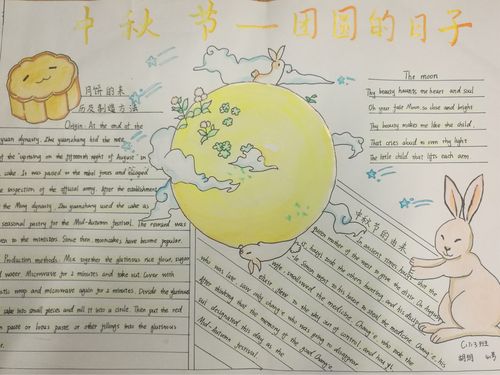 中秋节—团圆的日子
月饼的来
历及制造方法
Origin: At the end of the
yuan dynasty, Zhu yuanzhang hid the note
of the "uprising on the fifteenth night of August" in
cake. It was passed to the rebel forces and escaped
inspection of the official army. After the establishment
the Ming dynasty, Zhu yuanzhang used the cake as
seasonal pastry for the Mid-Autumn festival. The reward was
to the ministers. Since then mooncakes have become popular.
Production methods: Mix together the glutinous rice flour, sugar
water. Microwave for 2 minutes and take out. Cover with
wrap and microwave again for 2 minutes. Divide the glutinous
cake into small pieces and roll it into a circle. Then put the red
paste or locus paste or other fillings into the glutinous
The moon
Thy beauty haunts me heart and soul
Oh your fale Moon so close and bright
Thy beauty makes me like the child,
That cries aloud to own thy light
The little child that lifts each arm
中秋节的由来
In ancient times, Houyi
queen mother of the west to give the elixir. On
Houyi took the others hunting, and his disciple
to steal the medicine. Chang'e, his
wife swallowed the medicine. Chang'e who took the
elixir flew to the sky out of control, and hou yi
who was love saw only chang'e who was going to disappear.
After thinking that the memory of the good Chang'e,
designated this day as the
Mid-Autumn festival.
胡玥